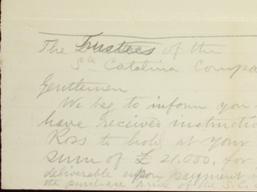 The Trustees of the
Sta Catalina Compa
Gentlemen
We beg to inform you
have received instructio
Ross to hold at your
sum of £ 21.000. for
deliverable upon payment
the purchase price of the